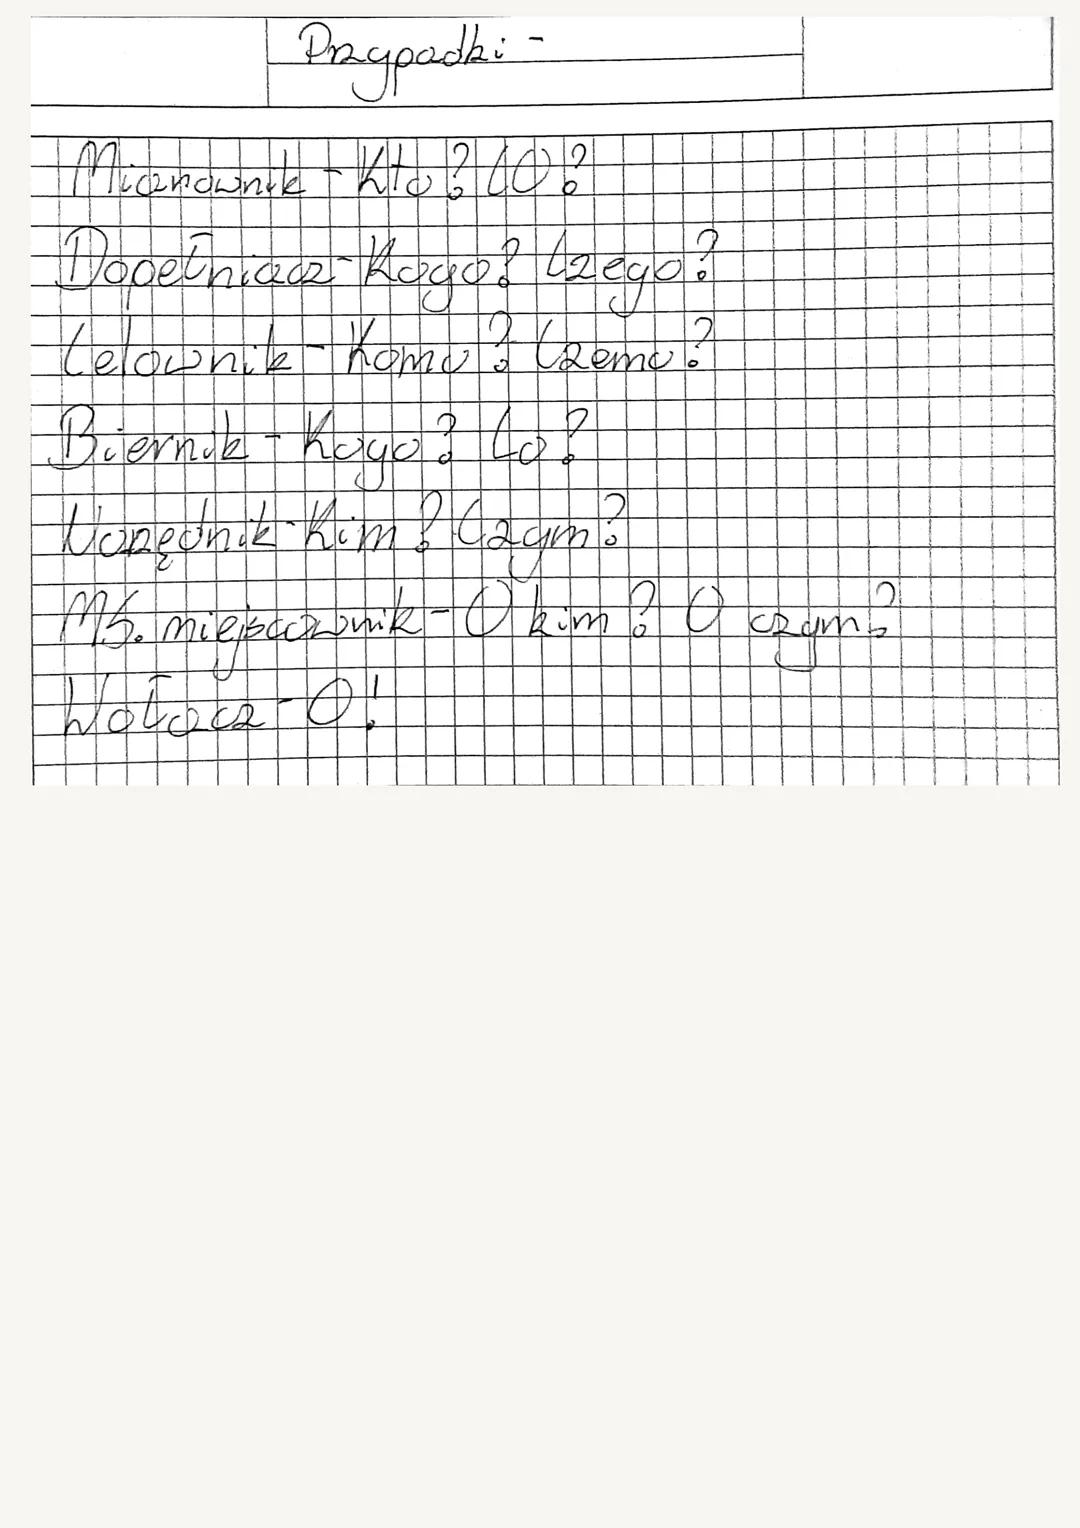 Przypadki -
Mianownik - Kto? CO?
Dopełniacz - Kogo? Czego?
Celownik - Komu? Czemu?
Biernik - Kogo? Co?
Narzędnik - Kim? Czym?
MS. miejscownik - O kim? O czym?
Wołacz - O!